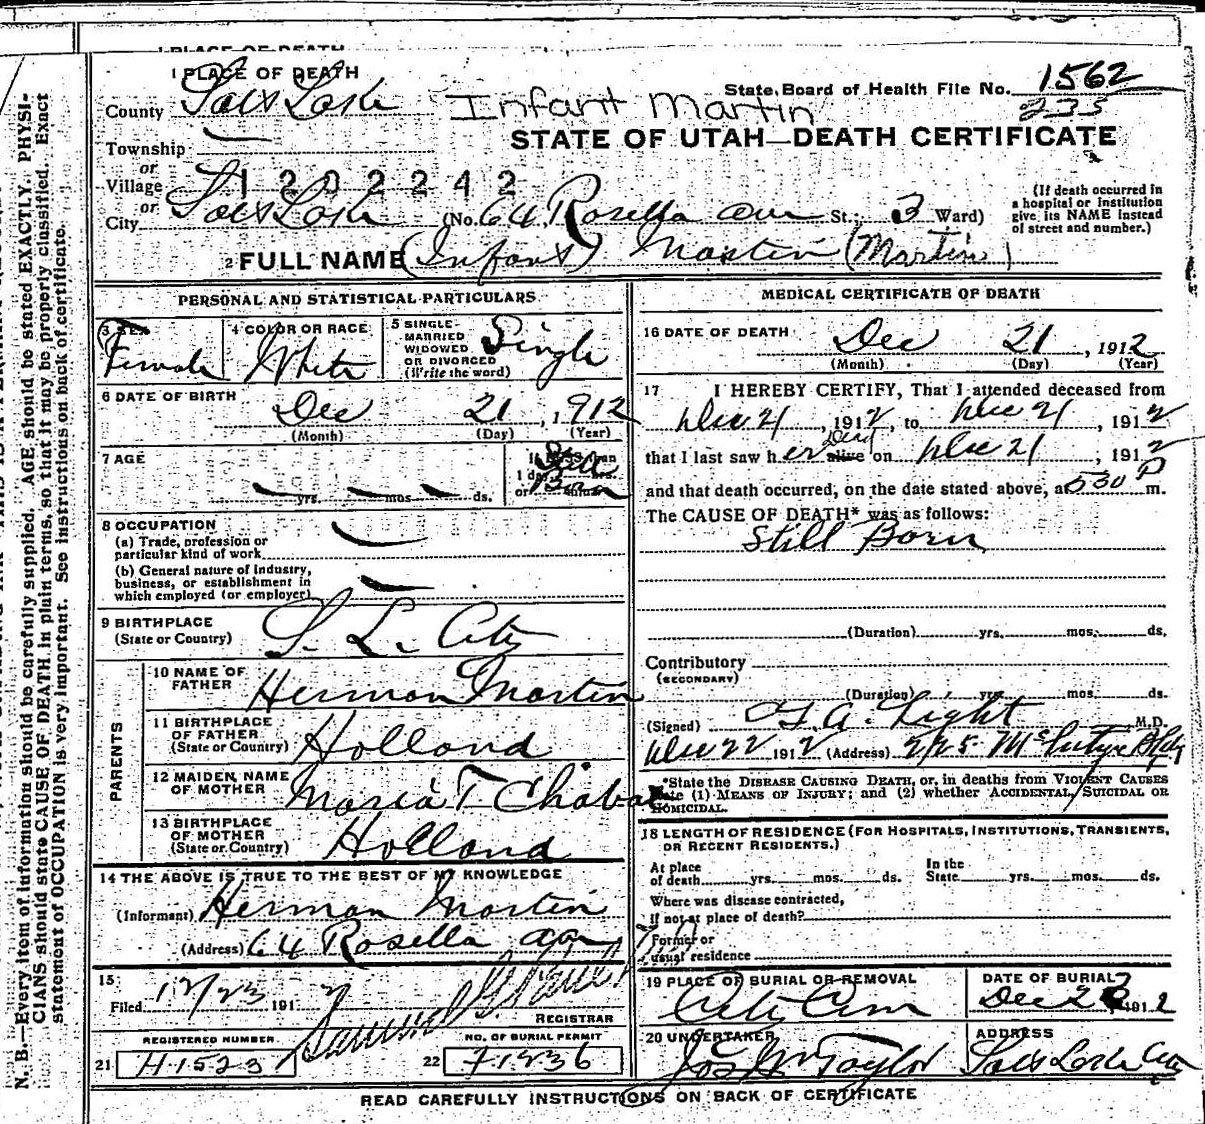 1 PLACE OF DEATH
State Board of Health File No. 1562
235
County Salt Lake Infant Martin
STATE OF UTAH—DEATH CERTIFICATE
Township
or
Village 1202242
or
City Salt Lake (No. 64 Rosella Ave St.; 3 Ward)
(If death occurred in
a hospital or institution
give its NAME instead
of street and number.)
2 FULL NAME (Infant) Martin (Martin)
PERSONAL AND STATISTICAL PARTICULARS
3 SEX
Female
4 COLOR OR RACE
White
5 SINGLE
MARRIED
WIDOWED
OR DIVORCED
(Write the word)
Single
6 DATE OF BIRTH
Dec 21, 1912
(Month) (Day) (Year)
7 AGE
yrs. mos. ds.
If LESS than
1 day hrs.
or min.
Still
Born
8 OCCUPATION
(a) Trade, profession or
particular kind of work
(b) General nature of industry,
business, or establishment in
which employed (or employer)
9 BIRTHPLACE
(State or Country)
S. L. City
PARENTS
10 NAME OF
FATHER
Herman Martin
11 BIRTHPLACE
OF FATHER
(State or Country)
Holland
12 MAIDEN NAME
OF MOTHER
Maria T
13 BIRTHPLACE
OF MOTHER
(State or Country)
Holland
14 THE ABOVE IS TRUE TO THE BEST OF MY KNOWLEDGE
(Informant) Herman Martin
(Address) 64 Rosella
15
Filed 12/23 1912
REGISTRAR
REGISTERED NUMBER
21 H1523
NO. OF BURIAL PERMIT
22 71936
MEDICAL CERTIFICATE OF DEATH
16 DATE OF DEATH
Dec 21, 1912
(Month) (Day) (Year)
17 I HEREBY CERTIFY, That I attended deceased from
Dec 21, 1912, to Dec 21, 1912
that I last saw her Dead alive on Dec 21, 1912
and that death occurred, on the date stated above, at 530 P m.
The CAUSE OF DEATH* was as follows:
Still Born
(Duration) yrs. mos. ds.
Contributory
(SECONDARY)
(Duration) yrs. mos. ds.
(Signed) M.D.
Dec 22 1912 (Address) 225 McIntyre Bldg
*State the DISEASE CAUSING DEATH, or, in deaths from VIOLENT CAUSES
state (1) MEANS OF INJURY; and (2) whether ACCIDENTAL, SUICIDAL OR
HOMICIDAL.
18 LENGTH OF RESIDENCE (FOR HOSPITALS, INSTITUTIONS, TRANSIENTS,
OR RECENT RESIDENTS.)
At place
of death yrs. mos. ds.
In the
State yrs. mos. ds.
Where was disease contracted,
If not at place of death?
Former or
usual residence
19 PLACE OF BURIAL OR REMOVAL
City Cem
DATE OF BURIAL
Dec 23 1912
20 UNDERTAKER
Jos Wm Taylor
ADDRESS
Salt Lake City
READ CAREFULLY INSTRUCTIONS ON BACK OF CERTIFICATE
N. B.—Every item of information should be carefully supplied. AGE should be stated EXACTLY. PHYSI-
CIANS should state CAUSE OF DEATH in plain terms, so that it may be properly classified. Exact
statement of OCCUPATION is very important. See instructions on back of certificate.